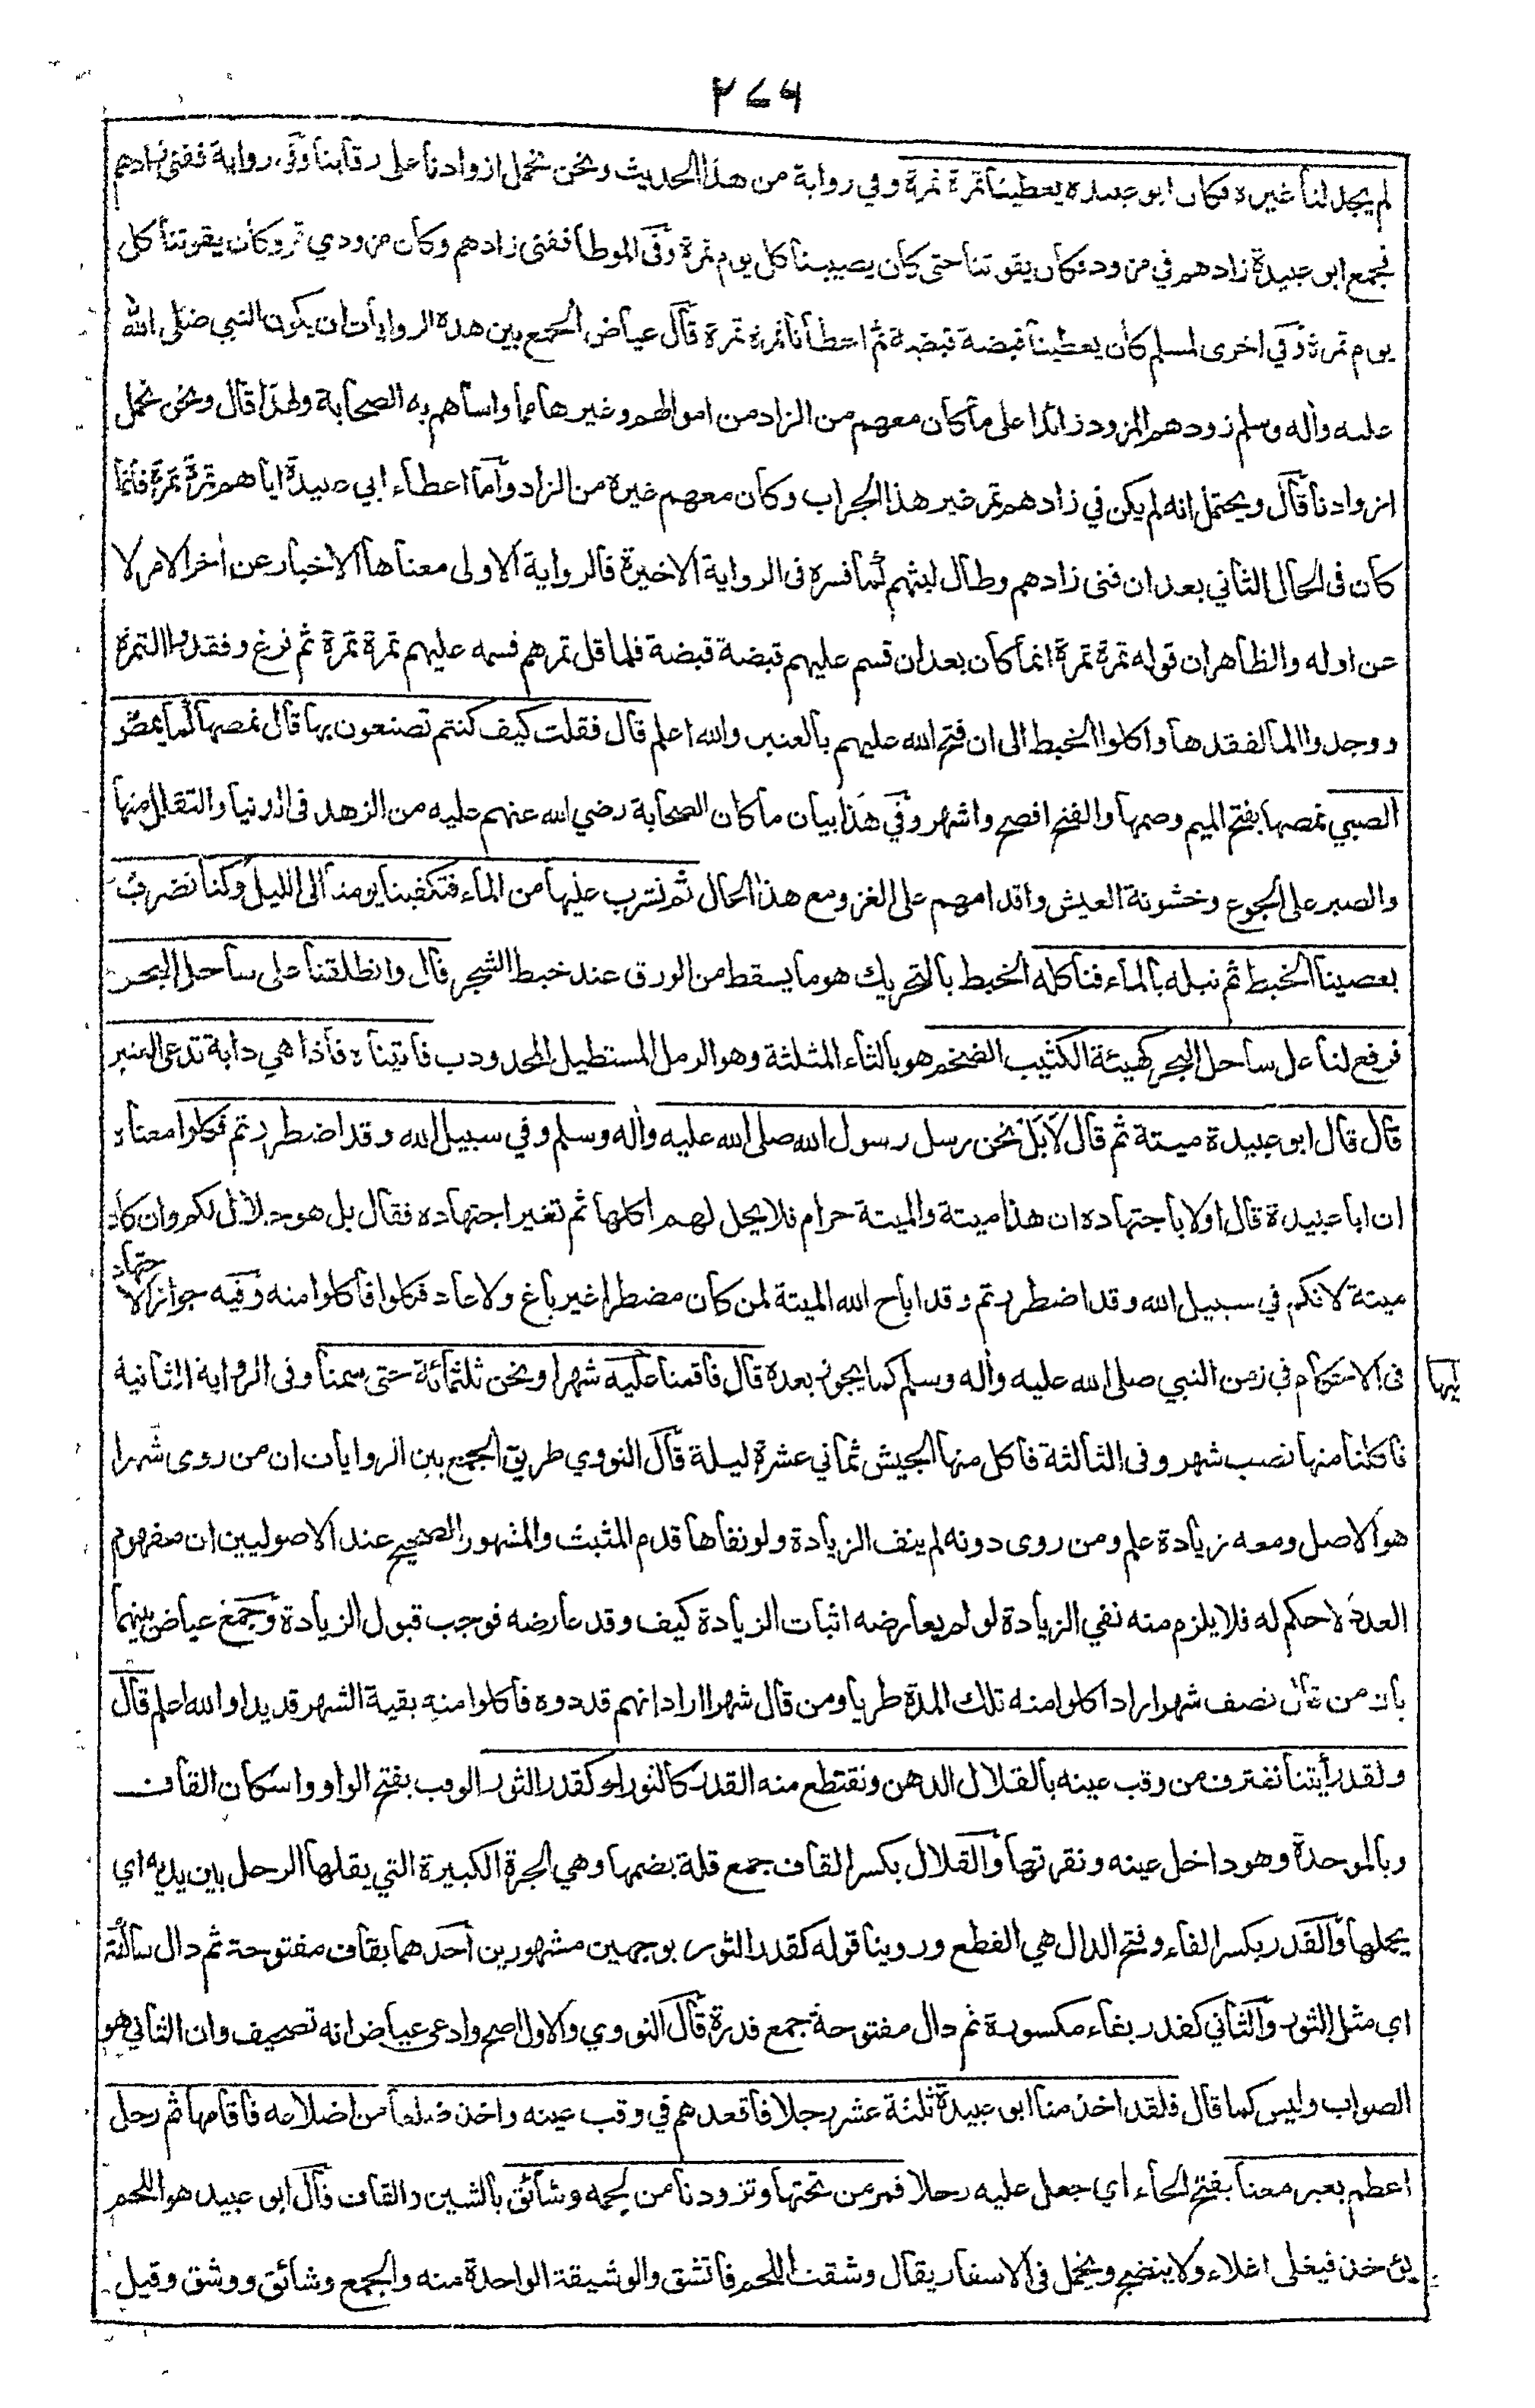 ٢٧٩
لم يجد لنا غيره فكان ابو عبيدة يعطينا تمرة تمرة وفي رواية من هذا الحديث ونحن نحمل ازوادنا على رقابنا وفي رواية ففنى زادهم
فجمع ابو عبيدة زادهم في مزود فكان يقوتنا حتى كان يصيبنا كل يوم تمرة وفى الموطأ ففنى زادهم وكان مزودي تمر وكان يقوتنا كل
يوم تمرة وفي اخرى لمسلم كان يعطينا قبضة قبضة ثم اعطانا تمرة تمرة قال عياض الجمع بين هذه الروايات ان يكون النبي صلى الله
عليه واٰله وسلم زودهم المزود زائدا على ما كان معهم من الزاد من اموالهم وغيرها مما واساهم به الصحابة ولهذا قال ونحن نحمل
ازوادنا قال ويحتمل انه لم يكن في زادهم تمر غير هذا الجراب وكان معهم غيره من الزاد واما اعطاء ابي عبيدة اياهم تمرة تمرة فانما
كان فى الحال الثاني بعد ان فنى زادهم وطال لبثهم كما فسره فى الرواية الاخيرة فالرواية الاولى معناها الاخبار عن اٰخر الامر لا
عن اوله والظاهر ان قوله تمرة تمرة انما كان بعد ان قسم عليهم قبضة قبضة فلما قل تمرهم قسمه عليهم تمرة تمرة ثم فرغ وفقدوا التمرة
ووجدوا الما لفقدها واكلوا الخبط الى ان فتح الله عليهم بالعنبر والله اعلم قال فقلت كيف كنتم تصنعون بها قال نمصها كما يمص
الصبي نمصها بفتح الميم وضمها والفتح افصح واشهر وفي هذا بيان ما كان الصحابة رضي الله عنهم عليه من الزهد فى الدنيا والتقلل منها
والصبر على الجوع وخشونة العيش واقدامهم على الغزو مع هذا الحال ثم نشرب عليها من الماء فتكفينا يومنا الى الليل وكنا نضرب
بعصينا الخبط ثم نبله بالماء فنأكله الخبط بالتحريك هو ما يسقط من الورق عند خبط الشجر قال وانطلقنا على ساحل البحر
فرفع لنا على ساحل البحر كهيئة الكثيب الضخم هو بالثاء المثلثة وهو الرمل المستطيل المحدودب فاتيناه فاذا هي دابة تدعى العنبر
قال قال ابو عبيدة ميتة ثم قال لا بل نحن رسل رسول الله صلى الله عليه واٰله وسلم وفي سبيل الله وقد اضطررتم فكلوا معناه
ان ابا عبيدة قال اولا باجتهاده ان هذا ميتة والميتة حرام فلا يحل لهم اكلها ثم تغير اجتهاده فقال بل هو حلال لكم وان كان
ميتة لانكم في سبيل الله وقد اضطررتم وقد اباح الله الميتة لمن كان مضطرا غير باغ ولا عاد فكلوا فأكلوا منه وفيه جواز الاجتهاد
فى الاحكام في زمن النبي صلى الله عليه واٰله وسلم كما يجوز بعده قال فاقمنا عليه شهرا ونحن ثلثمائة حتى سمنا وفى الرواية الثانية
فاكلنا منها نصف شهر وفى الثالثة فأكل منها الجيش ثماني عشرة ليلة قال النووي طريق الجمع بين الروايات ان من روى شهرا
هو الاصل ومعه زيادة علم ومن روى دونه لم ينف الزيادة ولو نفاها قدم المثبت والمشهور الصحيح عند الاصوليين ان مفهوم
العدد لا حكم له فلا يلزم منه نفي الزيادة لو لم يعارضه اثبات الزيادة كيف وقد عارضه فوجب قبول الزيادة وجمع عياض بينهما
بان من قال نصف شهر اراد اكلوا منه تلك المدة طريا ومن قال شهرا اراد انهم قددوه فأكلوا منه بقية الشهر قديدا والله اعلم قال
ولقد رأيتنا نغترف من وقب عينه بالقلال الدهن ونقتطع منه الفدر كالثور او كقدر الثور الوقب بفتح الواو واسكان القاف
وبالموحدة وهو داخل عينه ونقرتها والقلال بكسر القاف جمع قلة بضمها وهي الجرة الكبيرة التي يقلها الرجل بين يديه اي
يحملها والفدر بكسر الفاء وفتح الدال هي القطع وروينا قوله كقدر الثور بوجهين مشهورين احدهما بقاف مفتوحة ثم دال ساكنة
اي مثل الثور والثاني كفدر بفاء مكسورة ثم دال مفتوحة جمع فدرة قال النووي والاول اصح وادعى عياض انه تصحيف وان الثاني هو
الصواب وليس كما قال فلقد اخذ منا ابو عبيدة ثلثة عشر رجلا فاقعدهم في وقب عينه واخذ ضلعا من اضلاعه فاقامها ثم رحل
اعظم بعير معنا بفتح الحاء اي جعل عليه رحلا فمر من تحتها وتزودنا من لحمه وشائق بالشين والقاف قال ابو عبيد هو اللحم
يؤخذ فيغلى اغلاء ولا ينضج ويحمل فى الاسفار يقال وشقت اللحم فاتشق والوشيقة الواحدة منه والجمع وشائق ووشق وقيل